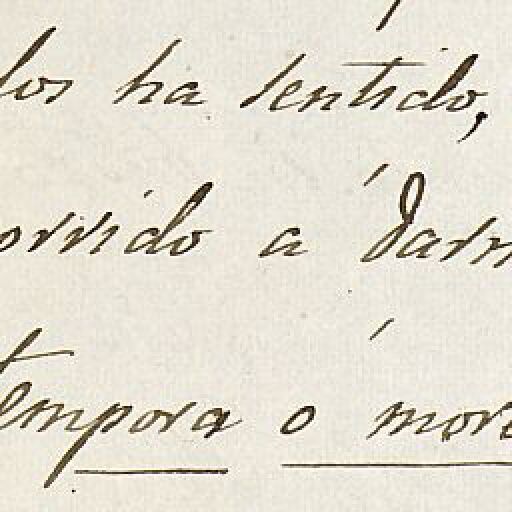 los ha sentido,
orrido á darn
tempora ó more